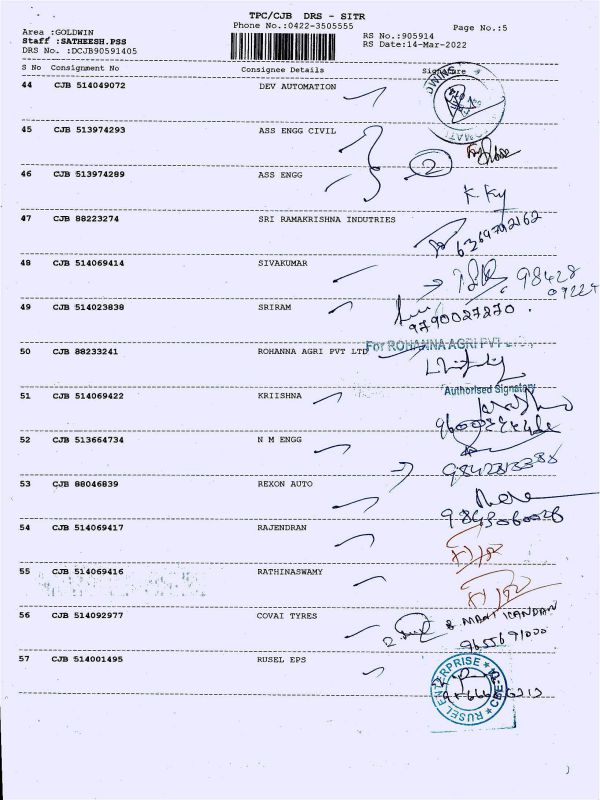 TPC/CJB DRS - SITR
Phone No.:0422-3505555
Page No.:5
Area :GOLDWIN
Staff :SATHEESH.PSS
DRS No. :DCJB90591405
RS No.:905914
RS Date:14-Mar-2022
S No Consignment No Consignee Details Signature
44 CJB 514049072 DEV AUTOMATION
45 CJB 513974293 ASS ENGG CIVIL
2
46 CJB 513974289 ASS ENGG
47 CJB 88223274 SRI RAMAKRISHNA INDUTRIES
48 CJB 514069414 SIVAKUMAR
98428
49 CJB 514023838 SRIRAM
9790027270
50 CJB 88233241 ROHANNA AGRI PVT LTD
For ROHANNA AGRI PVT
Authorised Signatory
51 CJB 514069422 KRIISHNA
52 CJB 513664734 N M ENGG
53 CJB 88046839 REXON AUTO
54 CJB 514069417 RAJENDRAN
55 CJB 514069416 RATHINASWAMY
56 CJB 514092977 COVAI TYRES
9655691000
57 CJB 514001495 RUSEL EPS
RUSEL ENTERPRISE